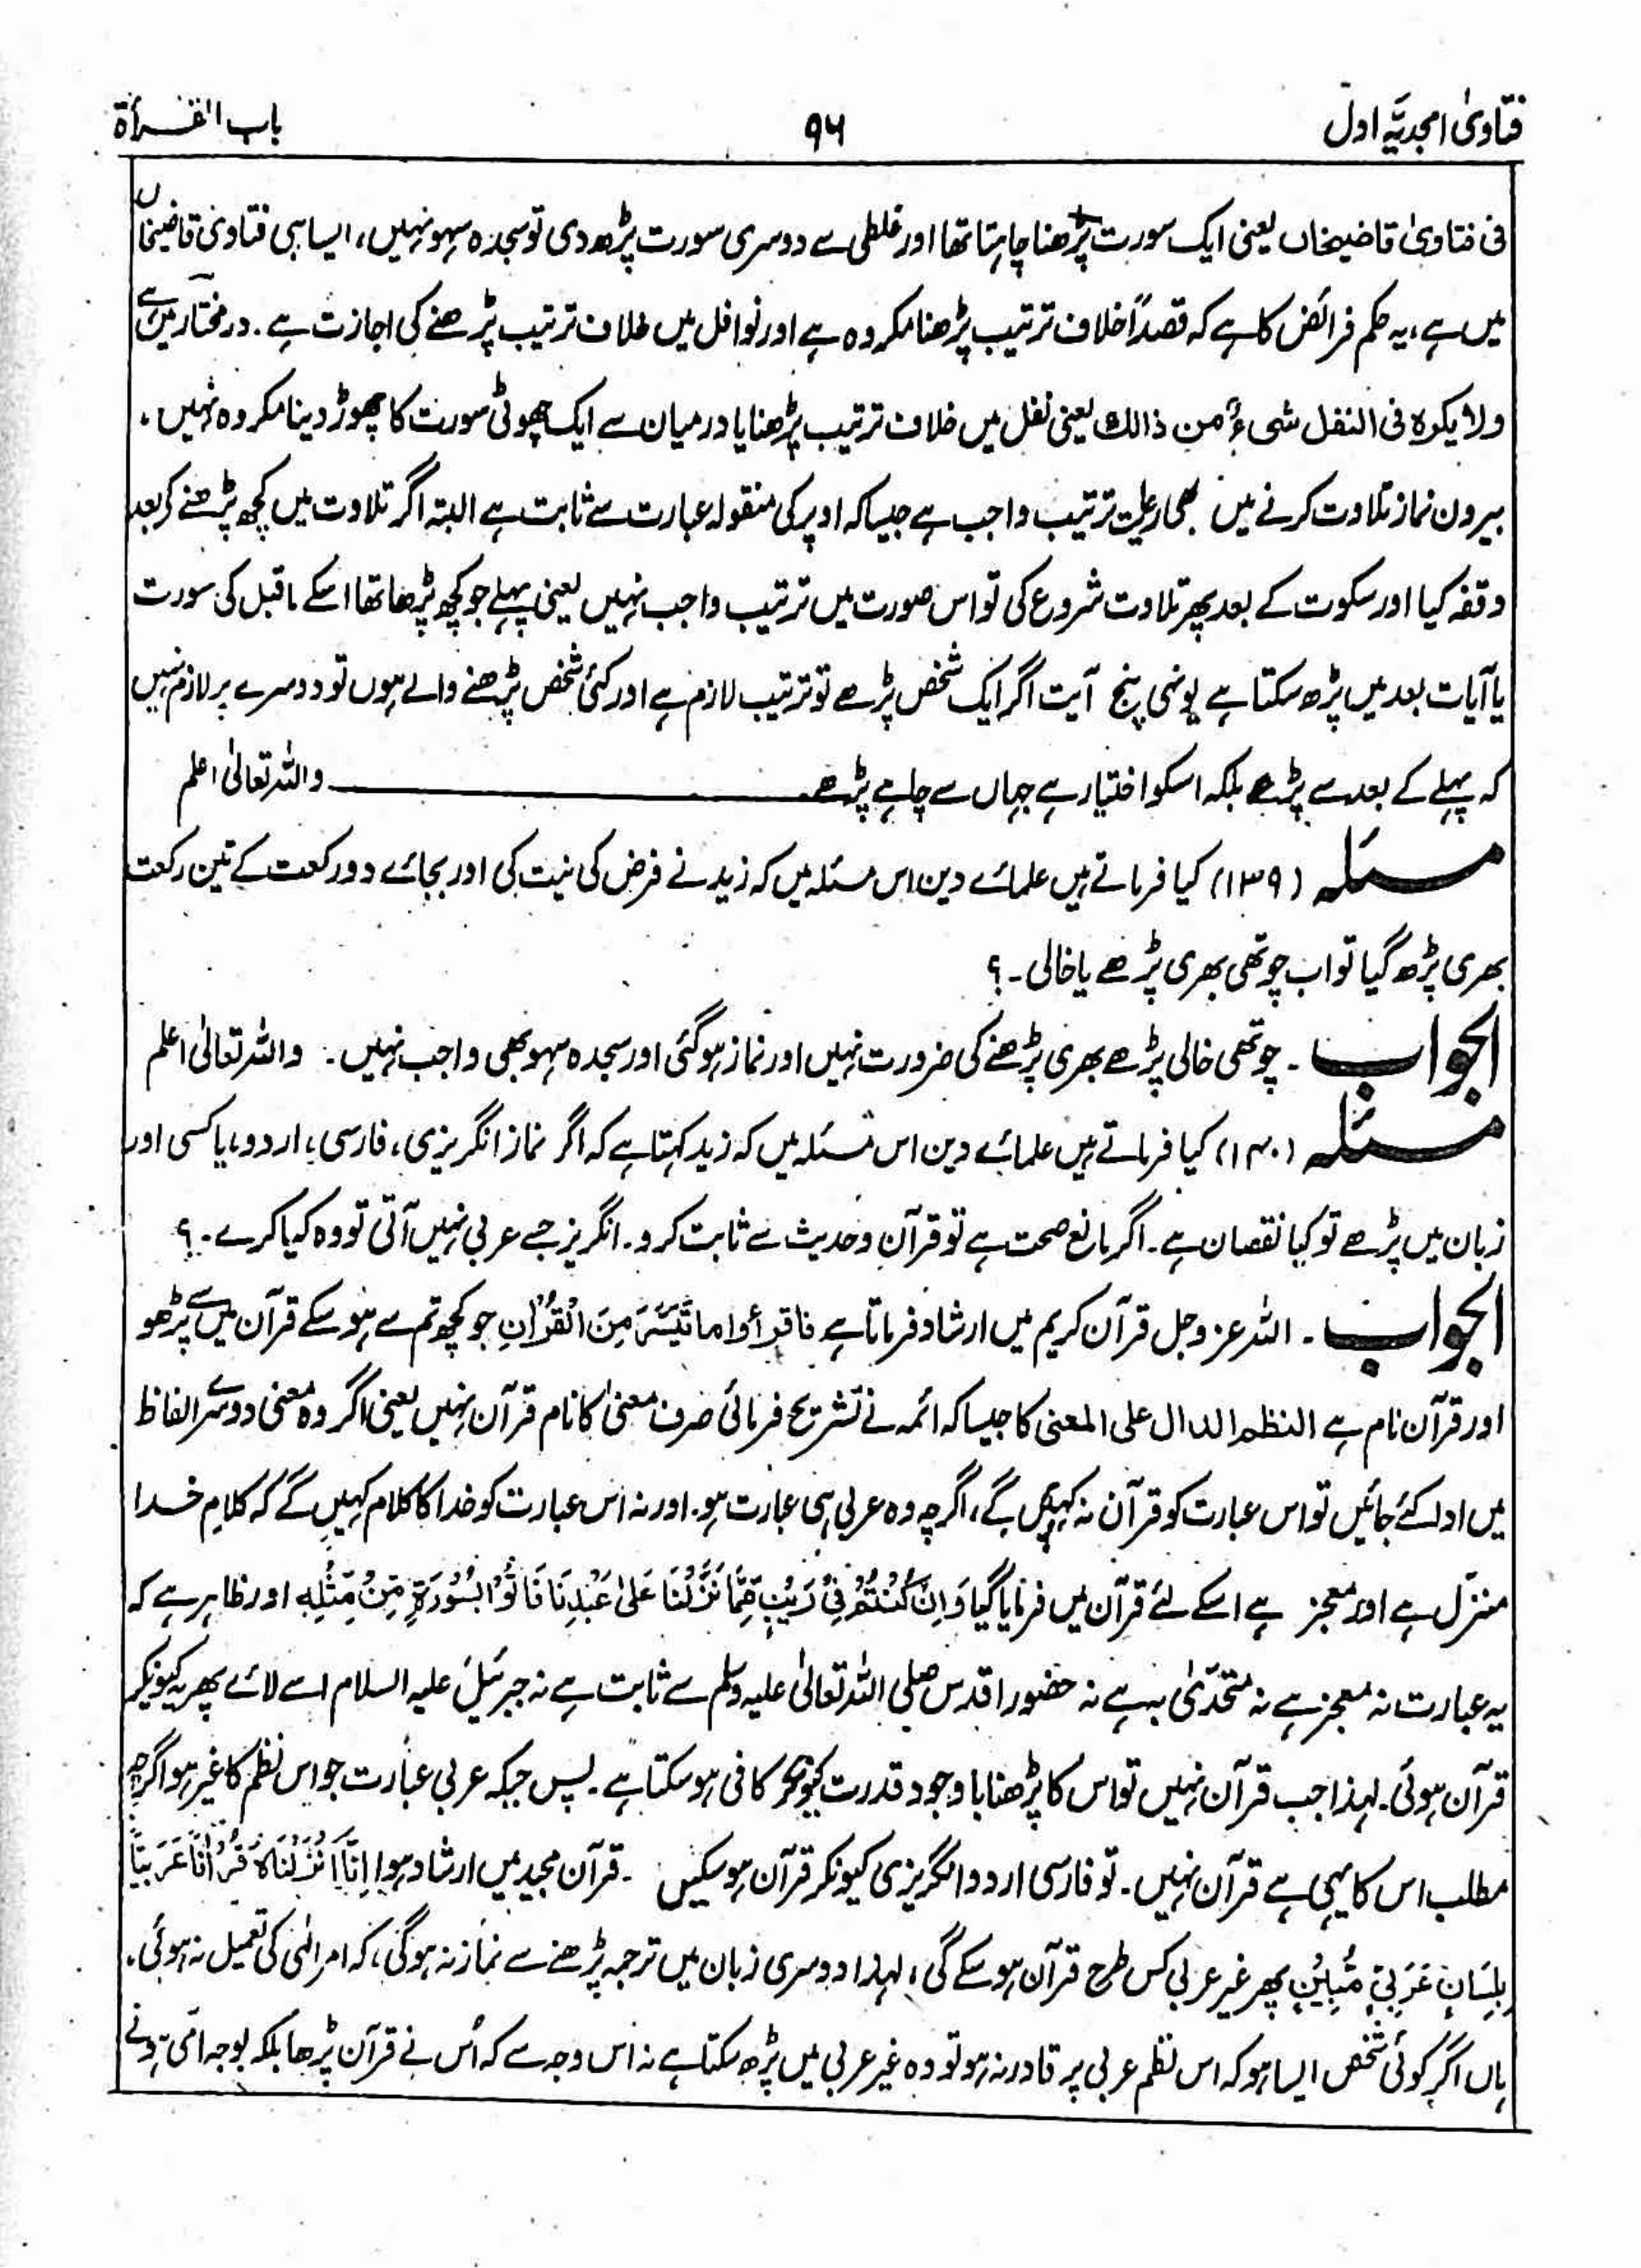 فتاویٰ امجدیّہ اول
۹۶
باب القرأۃ
فی فتاویٰ قاضیخاں یعنی ایک سورت پڑھنا چاہتا تھا اور غلطی سے دوسری سورت پڑھ دی تو سجدہ سہو نہیں، ایسا ہی فتاویٰ قاضیخاں
میں ہے، یہ حکم فرائض کا ہے کہ قصداً خلاف ترتیب پڑھنا مکروہ ہے اور نوافل میں خلاف ترتیب پڑھنے کی اجازت ہے۔ درمختار میں ہے
ولا یکرہ فی النفل شیءٌ من ذالک یعنی نفل میں خلاف ترتیب پڑھنا یا درمیان سے ایک چھوٹی سورت کا چھوڑ دینا مکروہ نہیں۔
بیرون نماز تلاوت کرنے میں بھی رعایت ترتیب واجب ہے جیسا کہ اوپر کی منقولہ عبارت سے ثابت ہے البتہ اگر تلاوت میں کچھ پڑھنے کے بعد
وقفہ کیا اور سکوت کے بعد پھر تلاوت شروع کی تو اس صورت میں ترتیب واجب نہیں یعنی پہلے جو کچھ پڑھا تھا اسکے ماقبل کی سورت
یا آیات بعد میں پڑھ سکتا ہے یونہی پنج آیت اگر ایک شخص پڑھے تو ترتیب لازم ہے اور کئی شخص پڑھنے والے ہوں تو دوسرے پر لازم نہیں
کہ پہلے کے بعد سے پڑھے بلکہ اسکو اختیار ہے جہاں سے چاہے پڑھے۔ واللہ تعالیٰ اعلم
مسئلہ (۱۳۹) کیا فرماتے ہیں علمائے دین اس مسئلہ میں کہ زید نے فرض کی نیت کی اور بجائے دو رکعت کے تین رکعت
بھری پڑھ گیا تو اب چوتھی بھری پڑھے یا خالی۔؟
الجواب۔ چوتھی خالی پڑھے بھری پڑھنے کی ضرورت نہیں اور نماز ہوگئی اور سجدہ سہو بھی واجب نہیں۔ واللہ تعالیٰ اعلم
مسئلہ (۱۴۰) کیا فرماتے ہیں علمائے دین اس مسئلہ میں کہ زید کہتا ہے کہ اگر نماز انگریزی، فارسی، اردو، یا کسی اور
زبان میں پڑھے تو کیا نقصان ہے۔ اگر مانع صحت ہے تو قرآن وحدیث سے ثابت کرو۔ انگریز جسے عربی نہیں آتی تو وہ کیا کرے۔؟
الجواب۔ اللہ عزوجل قرآن کریم میں ارشاد فرماتا ہے فاقرأوا ما تَیَسَّرَ مِنَ الْقُرْاٰنِ جو کچھ تم سے ہوسکے قرآن میں سے پڑھو
اور قرآن نام ہے النظم الدال علی المعنیٰ کا جیسا کہ ائمہ نے تشریح فرمائی صرف معنیٰ کا نام قرآن نہیں یعنی اگر وہ معنی دوسرے الفاظ
میں ادا کئے جائیں تو اس عبارت کو قرآن نہ کہیں گے، اگرچہ وہ عربی ہی عبارت ہو۔ اور نہ اس عبارت کو خدا کا کلام کہیں گے کہ کلام خدا
منزّل ہے اور معجز ہے اسکے لئے قرآن میں فرمایا گیا وَاِنْ کُنْتُمْ فِیْ رَیْبٍ مِّمَّا نَزَّلْنَا عَلیٰ عَبْدِنَا فَاْتُوْا بِسُوْرَۃٍ مِّنْ مِّثْلِہٖ اور ظاہر ہے کہ
یہ عبارت نہ معجز ہے نہ متحدّیٰ بہ ہے نہ حضور اقدس صلی اللہ تعالیٰ علیہ وسلم سے ثابت ہے نہ جبرئیل علیہ السلام اسے لائے پھر یہ کیونکر
قرآن ہوئی۔ لہٰذا جب قرآن نہیں تو اس کا پڑھنا باوجود قدرت کیونکر کافی ہوسکتا ہے۔ پس جبکہ عربی عبارت جو اس نظم کا غیر ہو اگرچہ
مطلب اس کا یہی ہے قرآن نہیں۔ تو فارسی اردو انگریزی کیونکر قرآن ہوسکیں۔ قرآن مجید میں ارشاد ہوا اِنَّا اَنْزَلْنَاہُ قُرْاٰنًا عَرَبِیًّا
بِلِسَانٍ عَرَبِیٍّ مُّبِیْنٍ پھر غیر عربی کس طرح قرآن ہوسکے گی، لہٰذا دوسری زبان میں ترجمہ پڑھنے سے نماز نہ ہوگی، کہ امر الٰہی کی تعمیل نہ ہوئی۔
ہاں اگر کوئی شخص ایسا ہو کہ اس نظم عربی پر قادر نہ ہو تو وہ غیر عربی میں پڑھ سکتا ہے نہ اس وجہ سے کہ اُس نے قرآن پڑھا بلکہ بوجہ امی ہونے